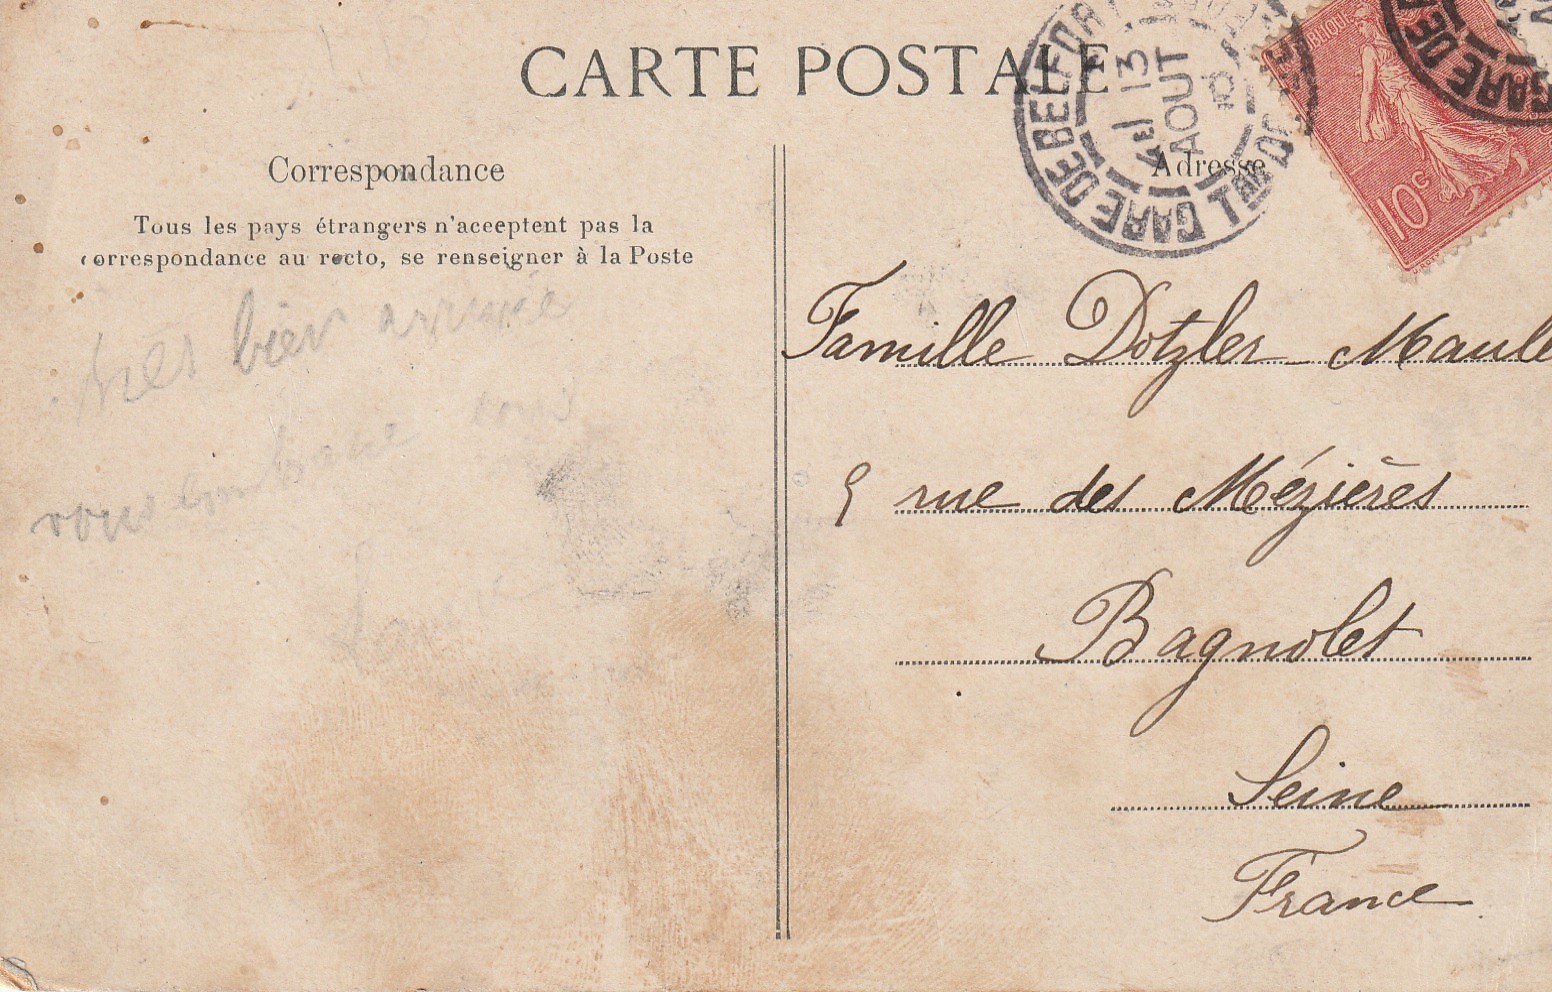 CARTE POSTALE
GARE DE BELFORT
13
AOUT
RÉPUBLIQUE
10c
GARE DE
Correspondance
Adresse
Tous les pays étrangers n'acceptent pas la
correspondance au recto, se renseigner à la Poste
très bien arrivée
vous embrasse
Famille Dotzler Maule
9 rue des Mézières
Bagnolet
Seine
France